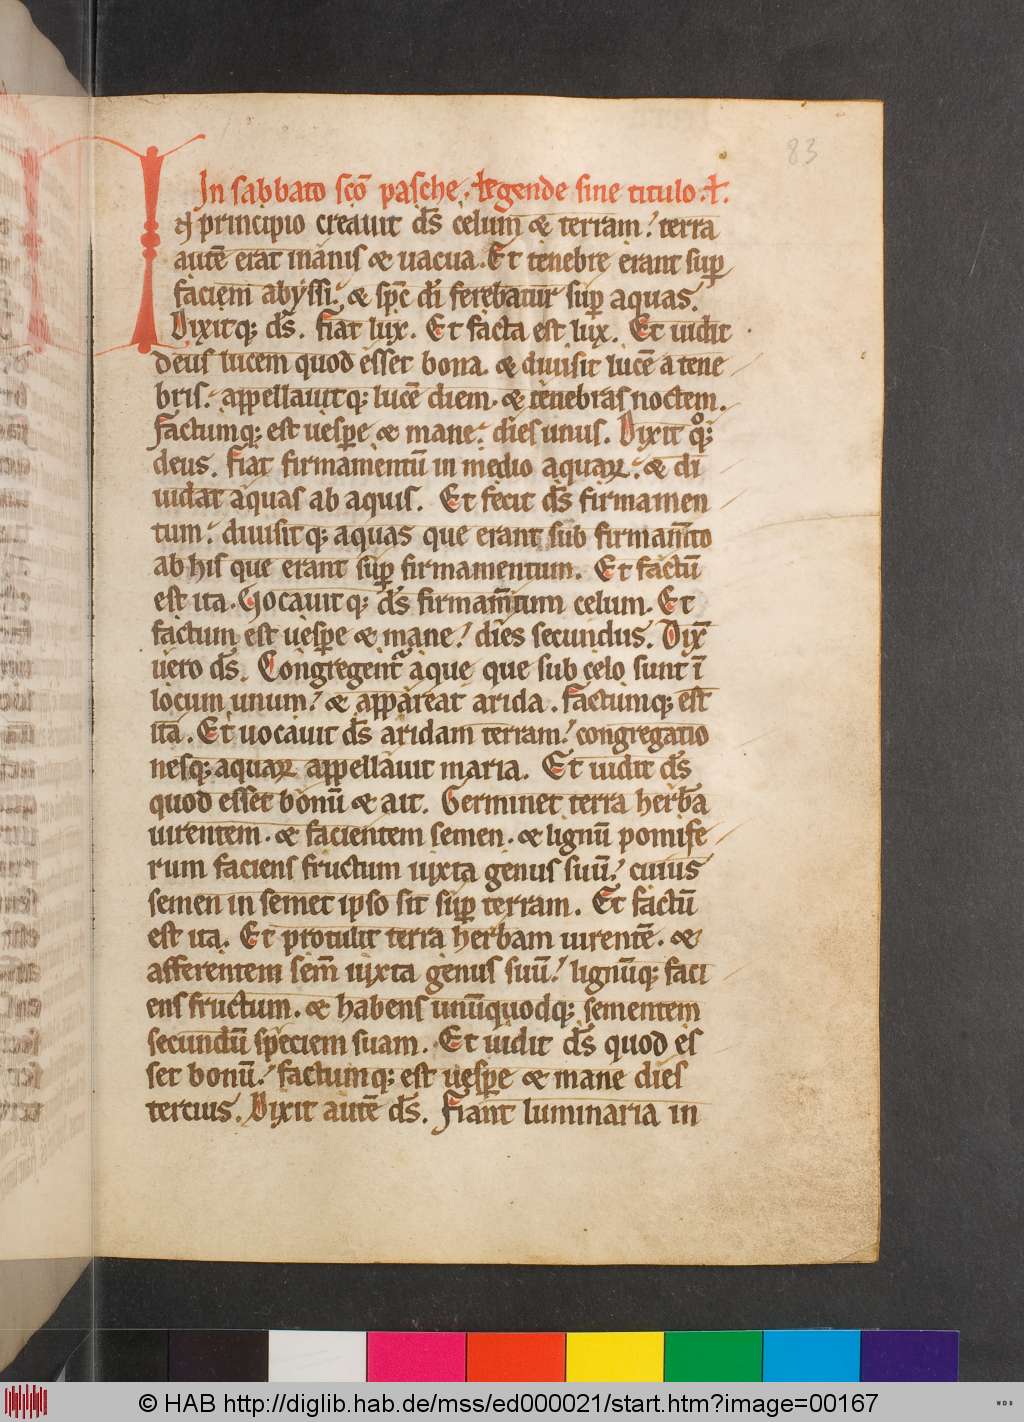 83
In sabbato scō pasche. Legende sine titulo. ł.
IN principio creauit ds̄ celum & terram. terra
autē erat inanis & uacua. Et tenebre erant suꝑ
faciem abyssi. & spc̄ dī ferebatur suꝑ aquas.
Dixitqꝫ ds̄. fiat lux. Et facta est lux. Et uidit
deus lucem quod esset bona. & diuisit lucē a tene
bris. appellauitqꝫ lucē diem. & tenebras noctem.
Factumqꝫ est uesꝑe & mane. dies unus. Dixit qͦqꝫ
deus. fiat firmamentū in medio aquaꝝ. & di
uidat aquas ab aquis. Et fecit ds̄ firmamen
tum. diuisitqꝫ aquas que erant sub firmam̄to
ab his que erant suꝑ firmamentum. Et factū
est ita. Uocauitqꝫ ds̄ firmam̄tum celum. Et
factum est uesꝑe & mane. dies secundus. Dix̄
uero ds̄. Congregent᷑ aque que sub celo sunt ī
locum unum. & appareat arida. factumqꝫ est
ita. Et uocauit ds̄ aridam terram. congregatio
nesqꝫ aquaꝝ appellauit maria. Et uidit ds̄
quod esset bonū & ait. Germinet terra herbā
uirentem. & facientem semen. & lignū pomife
rum faciens fructum iuxta genus suū. cuius
semen in semet ipso sit suꝑ terram. Et factū
est ita. Et protulit terra herbam uirentē. &
afferentem sem̄ iuxta genus suū. lignūqꝫ faci
ens fructum. & habens unūquodqꝫ sementem
secundū speciem suam. Et uidit ds̄ quod es
set bonū. factumqꝫ est uesꝑe & mane dies
tercius. Dixit autē ds̄. Fiant luminaria in
© HAB http://diglib.hab.de/mss/ed000021/start.htm?image=00167